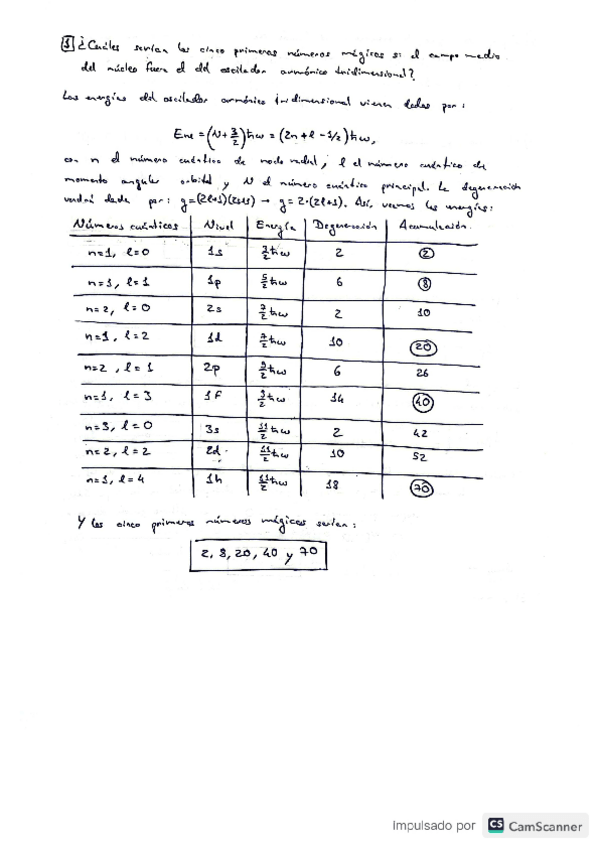 1 ¿Cuáles serían los cinco primeros números mágicos si el campo medio
del núcleo fuera el del oscilador armónico tridimensional?
Las energías del oscilador armónico tridimensional vienen dadas por:
Enl = (N + 3/2) ħω = (2n + l - 1/2) ħω,
con n el número cuántico de nodo radial, l el número cuántico de
momento angular orbital y N el número cuántico principal. La degeneración
vendrá dada por: g=(2l+1)(2s+1) → g = 2·(2l+1). Así, veamos las energías:
Números cuánticos Nivel Energía Degeneración Acumulación
n=1, l=0 1s 3/2 ħω 2 2
n=1, l=1 1p 5/2 ħω 6 8
n=2, l=0 2s 7/2 ħω 2 10
n=1, l=2 1d 7/2 ħω 10 20
n=2, l=1 2p 9/2 ħω 6 26
n=1, l=3 1f 9/2 ħω 14 40
n=3, l=0 3s 11/2 ħω 2 42
n=2, l=2 2d 11/2 ħω 10 52
n=1, l=4 1h 11/2 ħω 18 70
Y los cinco primeros números mágicos serían:
2, 8, 20, 40 y 70
Impulsado por CS CamScanner